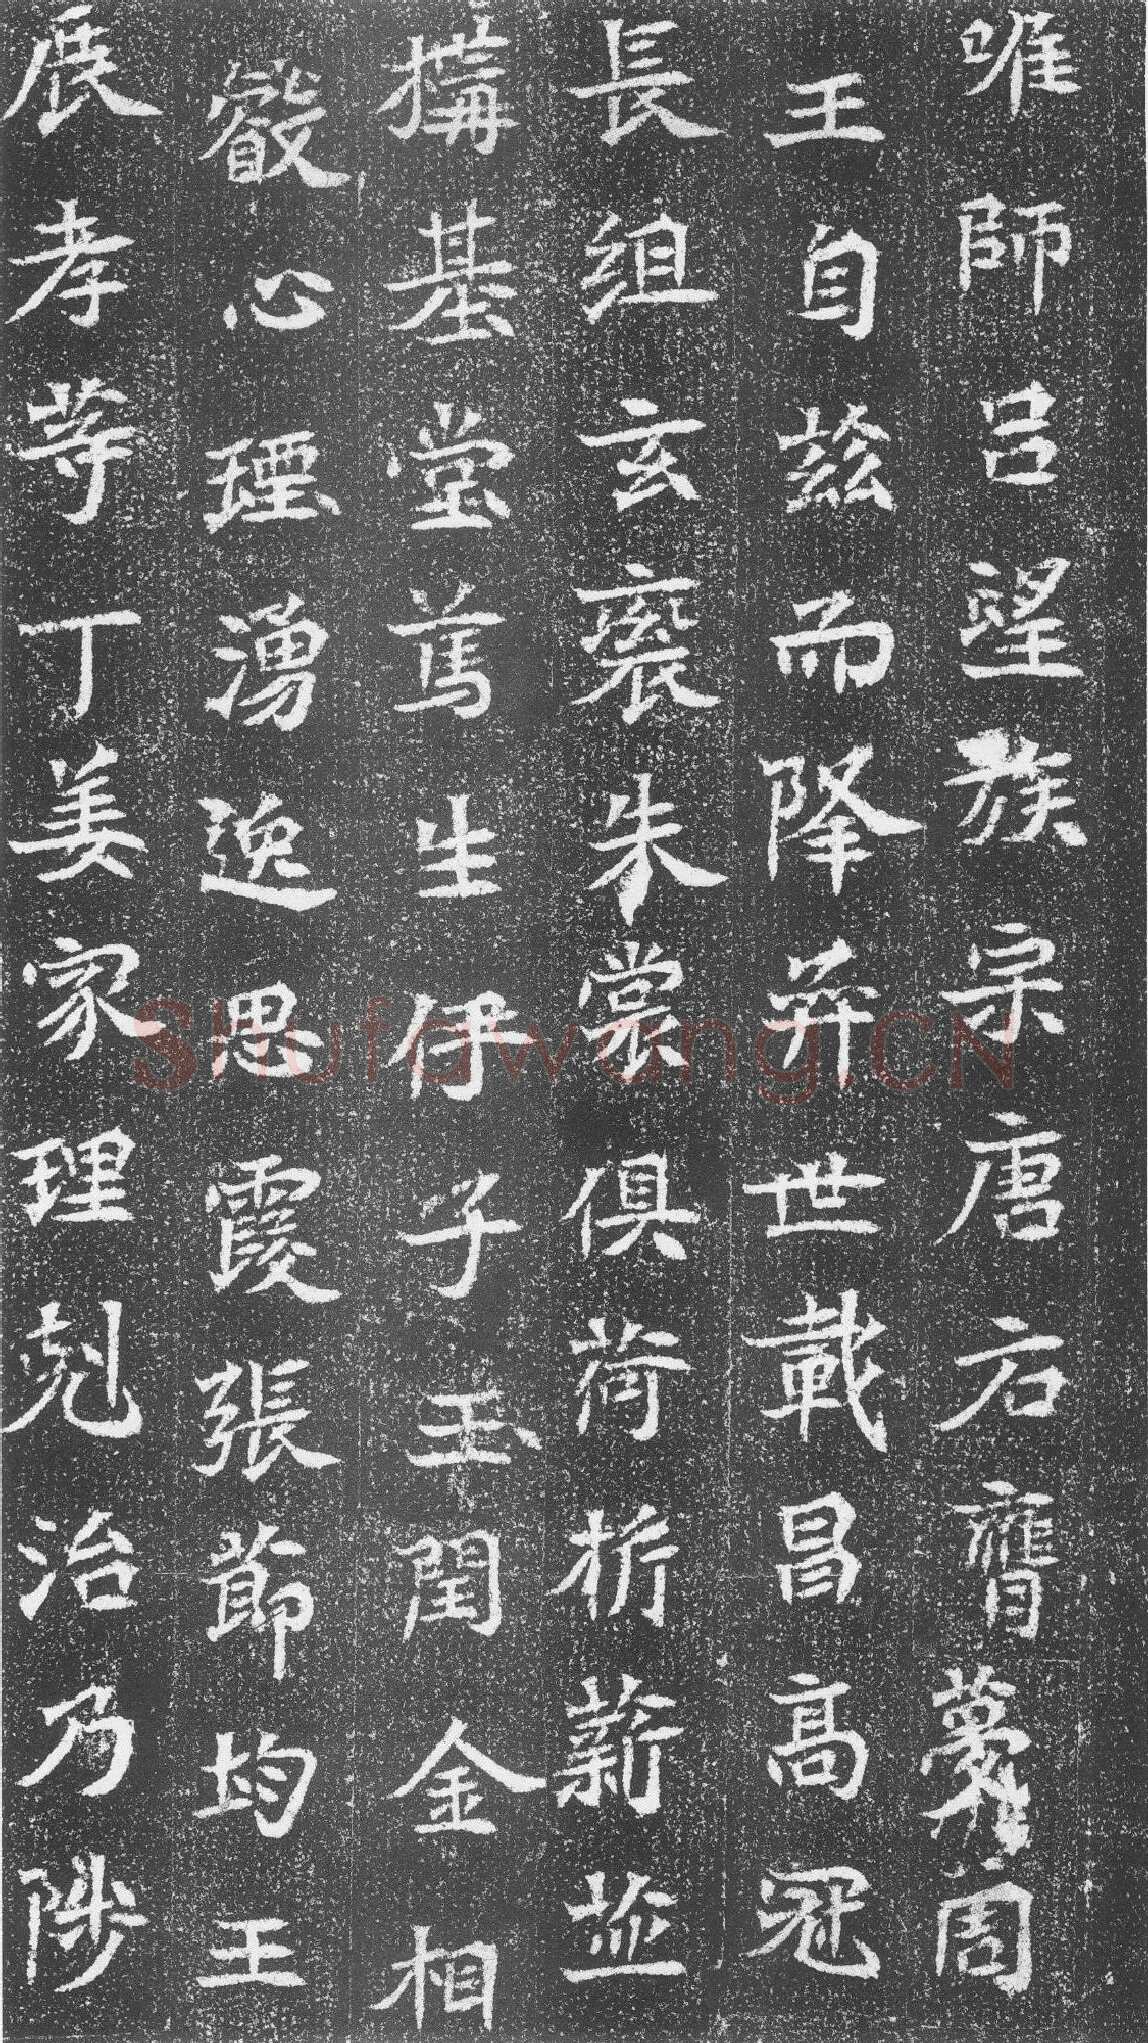 唯師呂望族宗唐右膺夢周
王自茲而降弈世載昌高冠
長組玄袞朱裳俱荷析薪並
搆基堂篤生伊子玉閏金相
叡心湧逸思霞張節均王
展孝等丁姜家理剋治乃陟
Shufawang.CN